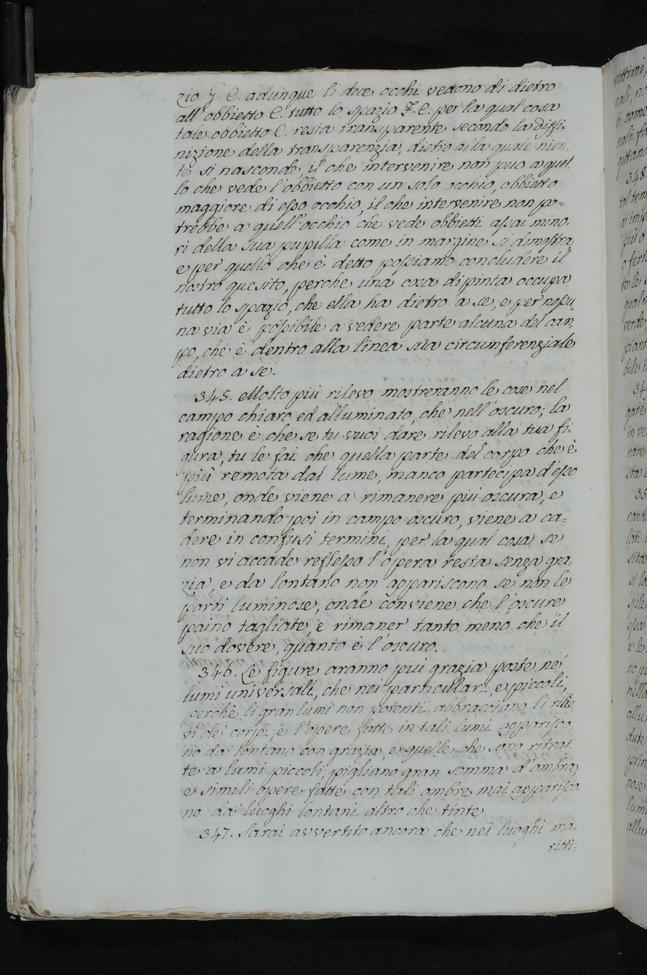 zio J. E. adunque li doa occhi vedono di dietro
all'obbietto C. tutto lo spazio J. E. per la qual cosa
tale obbietto C. resta transparente secondo la diffi-
nizione della transparenza, dietro alla quale nien-
te si nasconde, il che intervenire non può a quel-
lo che vede l'obbietto con un solo occhio, obbietto
maggiore di esso occhio, il che intervenire non po-
trebbe a quell'occhio che vede obbietti assai mino-
ri della sua pupilla come in margine si dimostra
e per quello che è detto possiamo concludere il
nostro quesito, perche una cosa dipinta occupa
tutto lo spazio, che ella ha dietro a se, e per nessu-
na via è possibile a vedere parte alcuna del cam-
po, che è dentro alla linea sua circumferenziale
dietro a se.
345. Molto più rilevo mostreranno le cose nel
campo chiaro ed alluminato, che nell'oscuro; la
ragione è che se tu vuoi dare rilevo alla tua fi-
gura, tu le fai che quella parte del corpo che è
più remota dal lume, manco partecipa d'esso
lume, onde viene a rimanere più oscura, e
terminando poi in campo oscuro, viene a ca-
dere in confusi termini, per la qual cosa se
non vi accade reflesso l'opera resta senza gra-
zia, e da lontano non appariscono se non le
parti luminose, onde conviene che l'oscure
paino tagliate, e rimaner tanto meno che il
suo dovere, quanto è l'oscuro.
346. Le figure aranno più grazia poste ne'
lumi universali, che nei particulari e piccoli,
perchè li gran lumi non potenti abbracciano li rile-
vi dei corpi, e l'opere fatte in tali lumi appárisco-
no dal lontano con grazia, e quelle che sono ritrat-
te a lumi piccoli, pigliano gran somma d'ombra,
e simili opere fatte con tali ombre, mai apparisco-
no da luoghi lontani altro che tinte.
347. Sarai avvertito ancora che nei luoghi ma-
ritti-